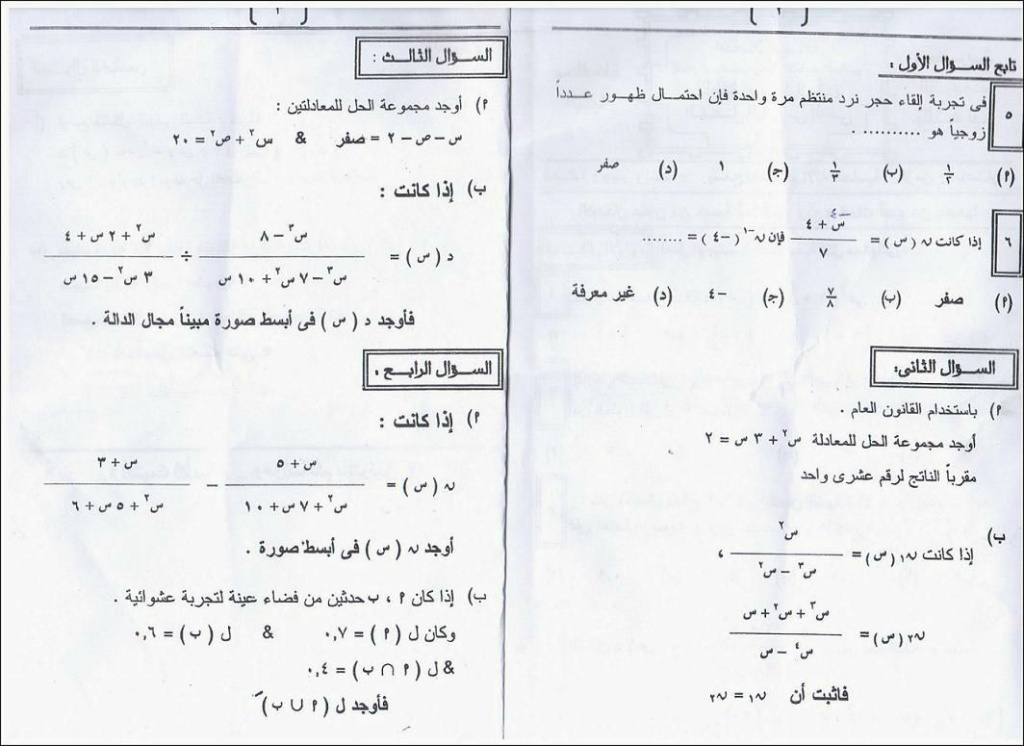 تابع السؤال الأول :
٥ فى تجربة إلقاء حجر نرد منتظم مرة واحدة فإن احتمال ظهور عدداً
زوجياً هو .......... .
(أ) ١/٢ (ب) ١/٣ (ج) ١ (د) صفر
٦ إذا كانت ن ( س ) = (س + ٤)/٧ فإن ن⁻¹ ( -٤ ) = ......
(أ) صفر (ب) ٧/٨ (ج) -٤ (د) غير معرفة
السؤال الثانى:
أ) باستخدام القانون العام .
أوجد مجموعة الحل للمعادلة س² + ٣ س = ٢
مقرباً الناتج لرقم عشرى واحد
ب) إذا كانت ن١ ( س ) = س² / (س³ - س²) ،
ن٢ ( س ) = (س³ + س² + س) / (س⁴ - س)
فاثبت أن ن١ = ن٢
السؤال الثالث :
أ) أوجد مجموعة الحل للمعادلتين :
س - ص - ٢ = صفر & س² + ص² = ٢٠
ب) إذا كانت :
د ( س ) = (س³ - ٨) / (س³ - ٧ س² + ١٠ س) ÷ (س² + ٢ س + ٤) / (٣ س² - ١٥ س)
فأوجد د ( س ) فى أبسط صورة مبيناً مجال الدالة .
السؤال الرابع .
أ) إذا كانت :
ن ( س ) = (س + ٥) / (س² + ٧ س + ١٠) - (س + ٣) / (س² + ٥ س + ٦)
أوجد ن ( س ) فى أبسط صورة .
ب) إذا كان أ ، ب حدثين من فضاء عينة لتجربة عشوائية .
وكان ل ( أ ) = ٠,٧ & ل ( ب ) = ٠,٦
& ل ( أ ∩ ب ) = ٠,٤
فأوجد ل ( أ ∪ ب )